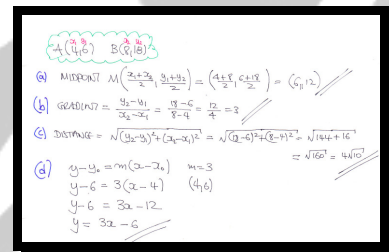 x₁ y₁ x₂ y₂
A(4,6) B(8,18)
(a) MIDPOINT M((x₁+x₂)/2, (y₁+y₂)/2) = ((4+8)/2, (6+18)/2) = (6,12)
(b) GRADIENT = (y₂-y₁)/(x₂-x₁) = (18-6)/(8-4) = 12/4 = 3
(c) DISTANCE = √((y₂-y₁)²+(x₂-x₁)²) = √((18-6)²+(8-4)²) = √(144+16)
= √160 = 4√10
(d) y-y₀ = m(x-x₀) m=3
y-6 = 3(x-4) (4,6)
y-6 = 3x-12
y = 3x-6